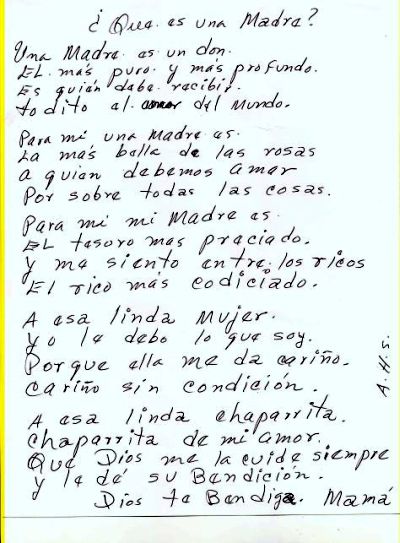 ¿Que es una Madre?
Una Madre es un don.
EL más puro y más profundo.
Es quién debe recibir.
todito el amor del Mundo.
Para mi una Madre es.
La más bella de las rosas
a quien debemos amar
Por sobre todas las cosas.
Para mi mi Madre es.
EL tesoro mas preciado.
y me siento entre los ricos
El rico más codiciado.
A esa linda Mujer.
yo le debo lo que soy.
Porque ella me da cariño.
cariño sin condición.
A esa linda chaparrita.
chaparrita de mi amor.
Que Dios me la cuide siempre
y le dé su Bendición.
Dios te Bendiga. Mamá
A.H.S.